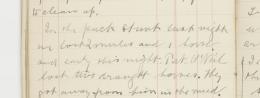 to clean up.
In the pack stunt last night
we lost 2 mules and 1 horse
and early this night. Pat O'
lost two draught horses. They
got away from him in the mud.